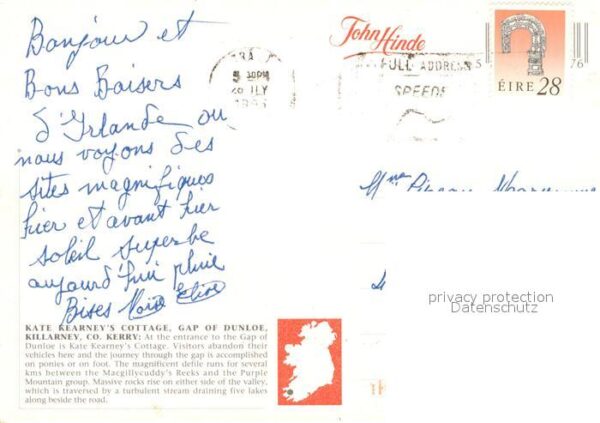 Bonjour et
Bons Baisers
d'Irlande ou
nous voyons des
sites magnifiques
hier et avant hier
soleil superbe
aujourd'hui pluie
Bises
John Hinde
5 76
ÉIRE 28
FULL ADDRESS
SPEEDS
Mme
privacy protection
Datenschutz
KATE KEARNEY'S COTTAGE, GAP OF DUNLOE,
KILLARNEY, CO. KERRY: At the entrance to the Gap of
Dunloe is Kate Kearney's Cottage. Visitors abandon their
vehicles here and the journey through the gap is accomplished
on ponies or on foot. The magnificent defile runs for several
kms between the Macgillycuddy's Reeks and the Purple
Mountain group. Massive rocks rise on either side of the valley,
which is traversed by a turbulent stream draining five lakes
along beside the road.